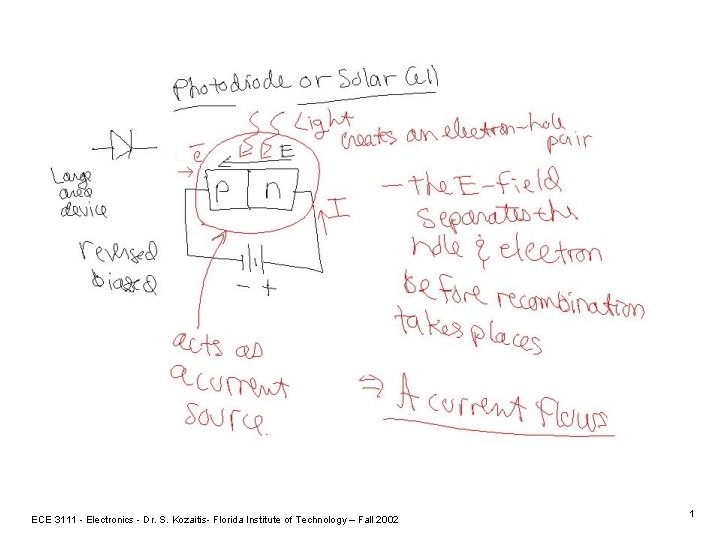 Photodiode or Solar Cell
Light
creates an electron-hole
pair
e
E
p n
I
Large
area
device
reversed
biased
- +
- the E-field
separates the
hole & electron
before recombination
takes places
acts as
a current
source.
⇒ A current flows
ECE 3111 - Electronics - Dr. S. Kozaitis- Florida Institute of Technology – Fall 2002
1